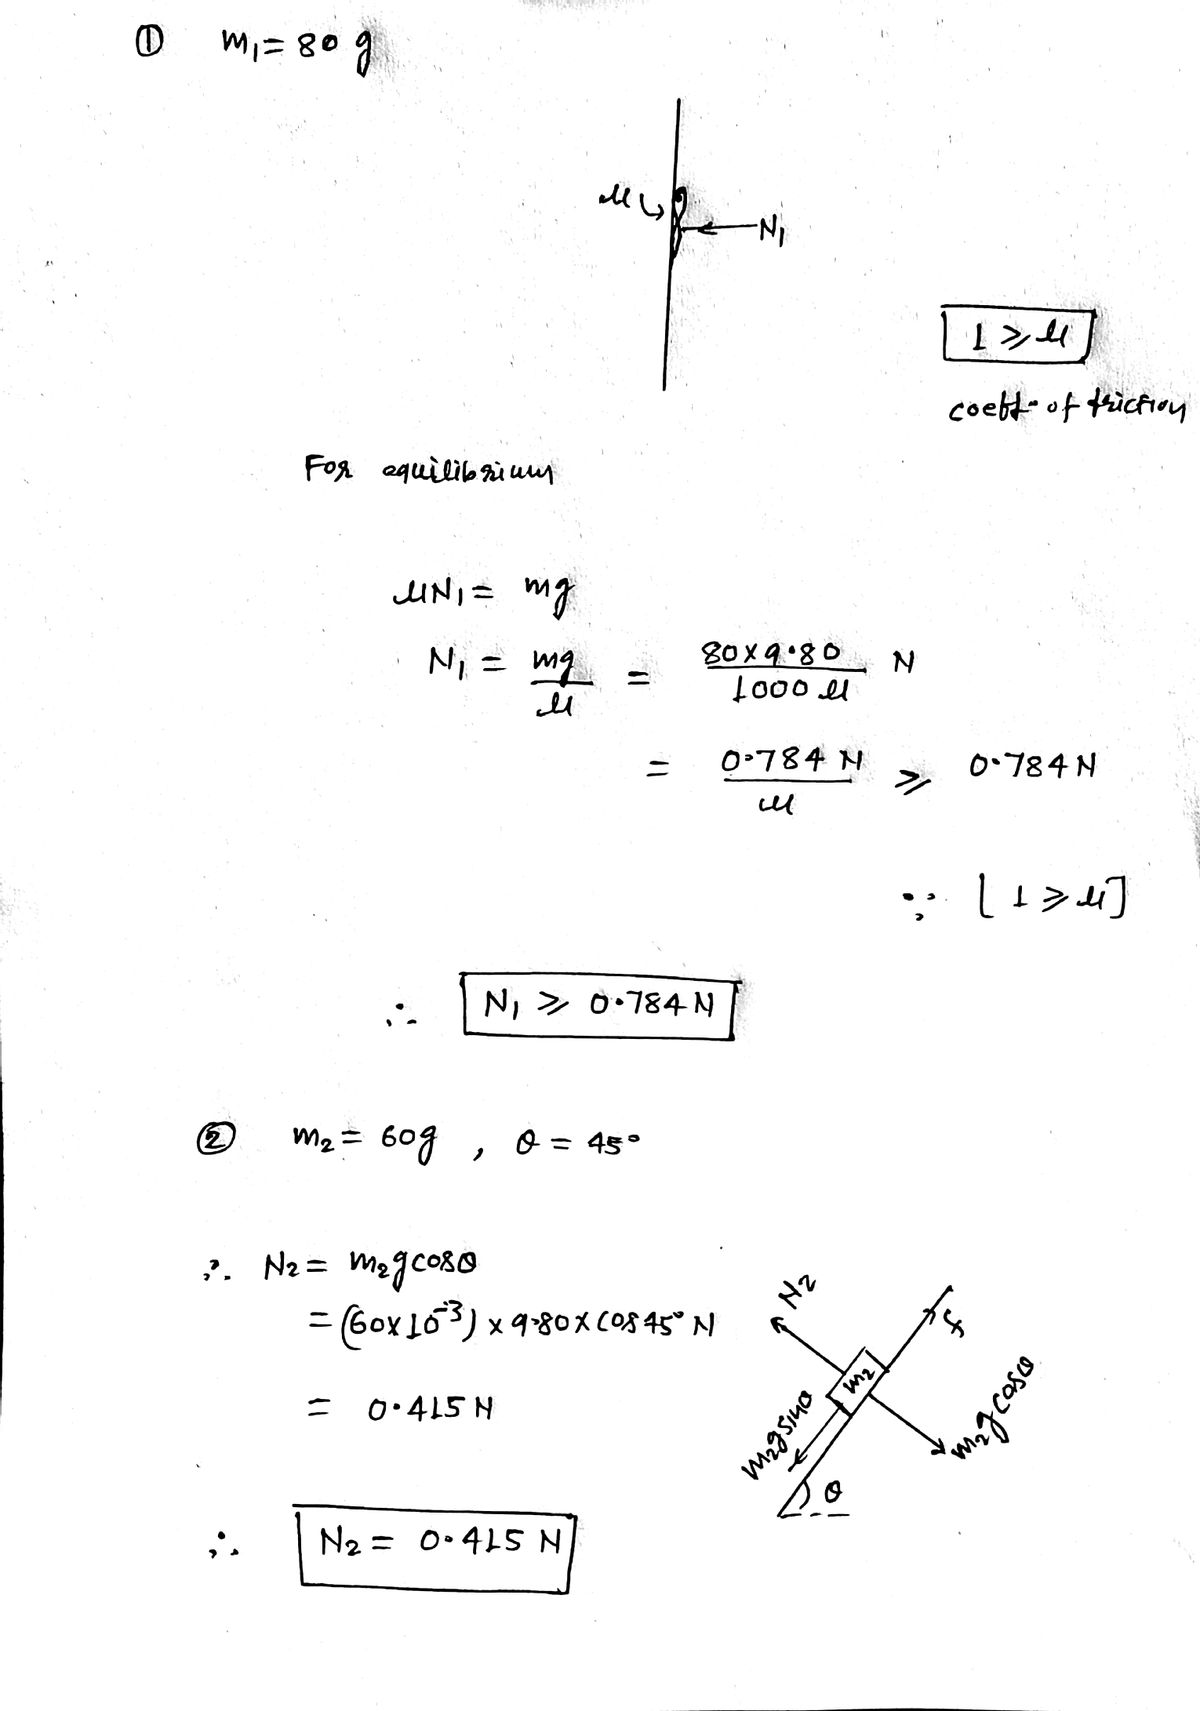 ① m₁ = 80 g
μ
N₁
1 ⩾ μ
coefft. of friction
For equilibrium
μN₁ = mg
N₁ = mg/μ = 80×9.80/1000 μ N
= 0.784 N/μ ⩾ 0.784 N
∵ [1 ⩾ μ]
∴ N₁ ⩾ 0.784 N
② m₂ = 60g , θ = 45°
∴ N₂ = m₂gcosθ
= (60×10⁻³) × 9.80 × cos45° N
= 0.415 N
N₂
m₂
m₂gsinθ
m₂gcosθ
θ
∴ N₂ = 0.415 N